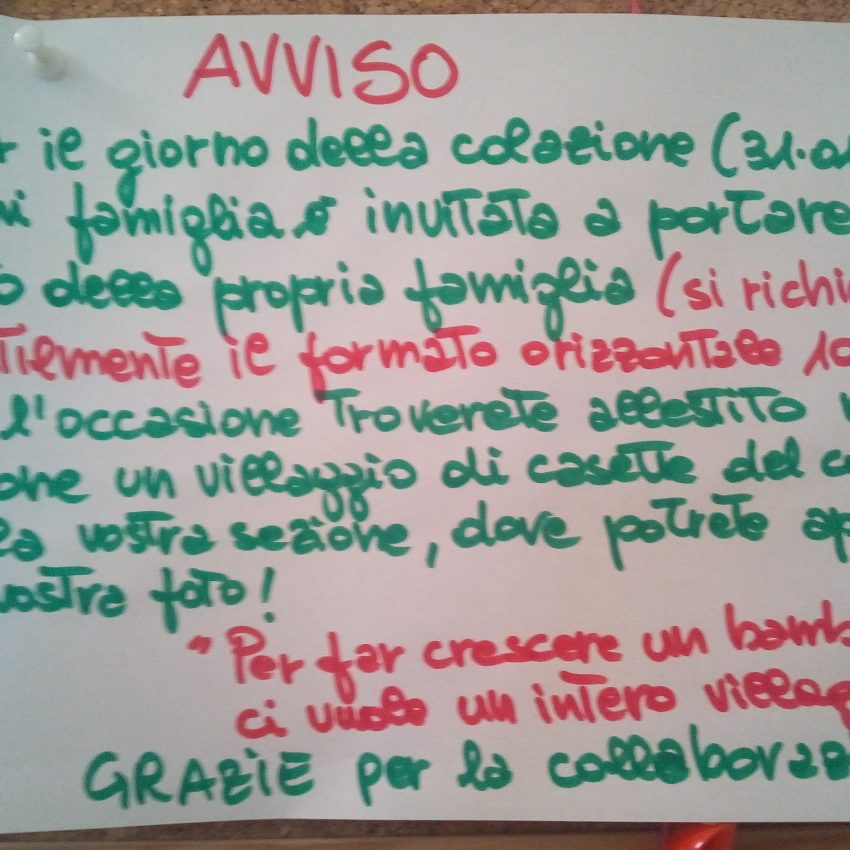 AVVISO
r il giorno della colazione (31.01
ni famiglia è invitata a portare
o della propria famiglia (si richi
tilmente il formato orizzontale 10
l'occasione troverete allestito
one un villaggio di casette del c
la vostra sezione, dove potrete ap
vostra foto!
"Per far crescere un bamb
ci vuole un intero villag
GRAZIE per la collaboraz